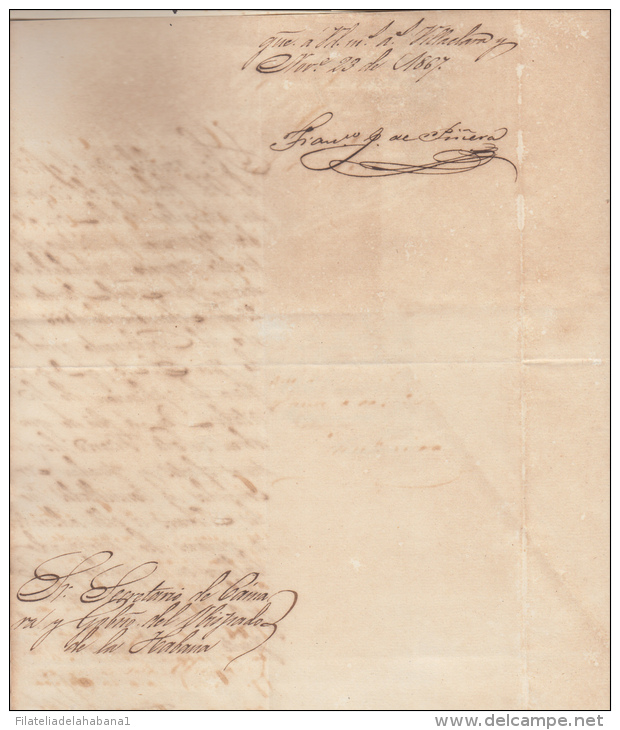 gue. a Vd. m.s a.s Villaclara y
Nov.e 23 de 1867.
Fran.co J. de Piñera
Sr. Secretario de Cáma
ra y Gobno. del Obispado
de la Habana
Filateliadelahabana1
www.delcampe.net